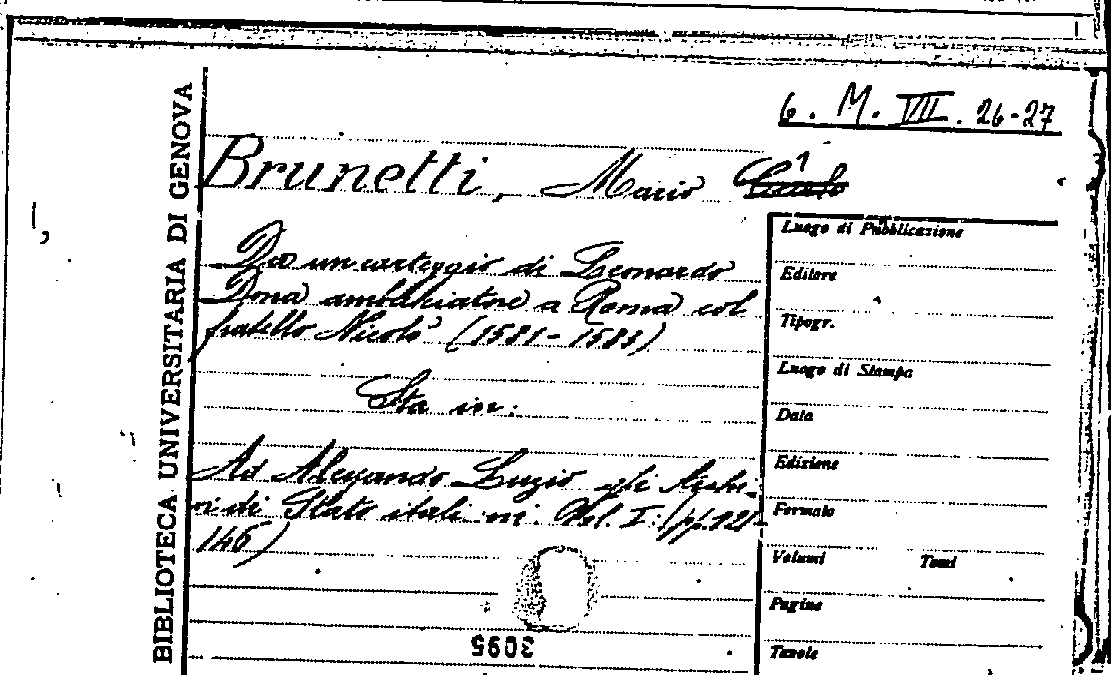 6. M. VII. 26-27
BIBLIOTECA UNIVERSITARIA DI GENOVA
Brunetti, Mario
Da un carteggio di Leonardo
Donà ambasciatore a Roma col
fratello Nicolò (1581-1583)
Sta in:
Ad Alessandro Luzio gli Archi-
vi di Stato italiani. Vol. I. (pp. 121-
146)
3095
Luogo di Pubblicazione
Editore
Tipogr.
Luogo di Stampa
Data
Edizione
Formato
Volumi Tomi
Pagine
Tavole